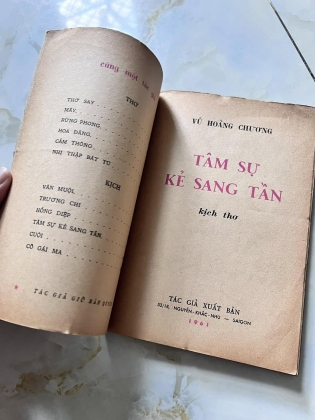 cùng một tác
THƠ
THƠ SAY
MÂY
RỪNG PHONG
HOA ĐĂNG
CẢM THÔNG
NHỊ THẬP BÁT TÚ
KỊCH
VÂN MUỘI
TRƯƠNG CHI
HỒNG DIỆP
TÂM SỰ KẺ SANG TẦN
CƯỚI
CÔ GÁI MA
* TÁC GIẢ GIỮ BẢN
VŨ HOÀNG CHƯƠNG
TÂM SỰ
KẺ SANG TẦN
kịch thơ
TÁC GIẢ XUẤT BẢN
NGUYỄN-KHẮC-NHU — SAIGON
1961